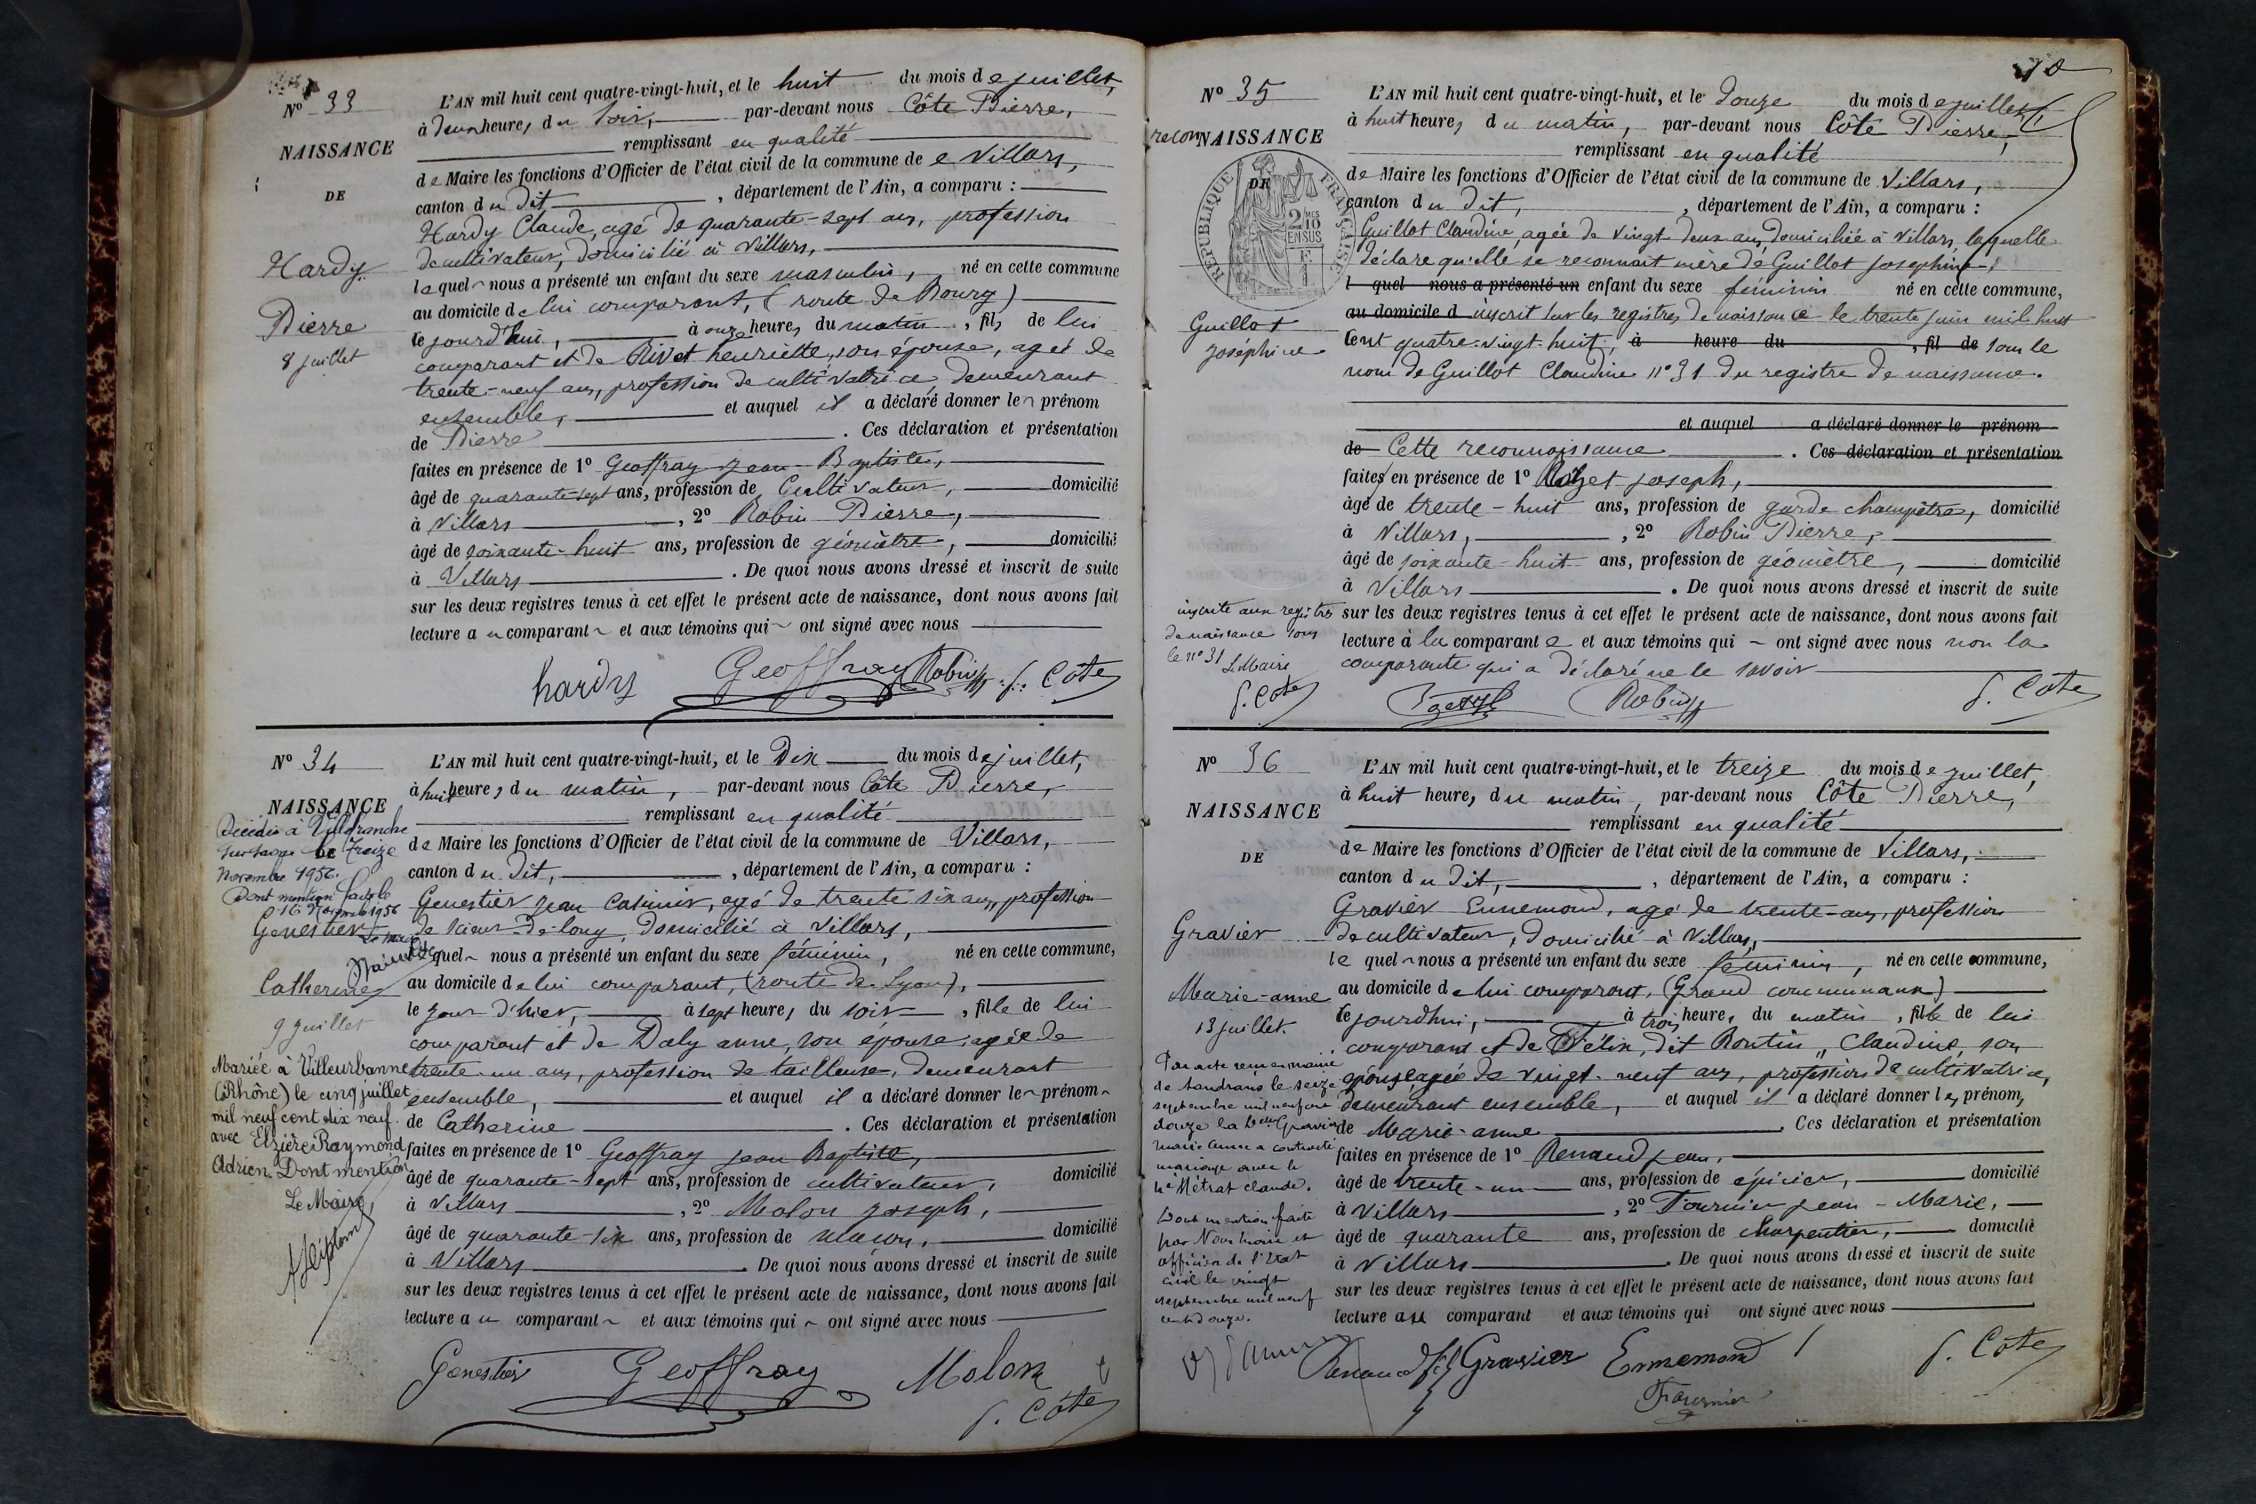 N° 33
NAISSANCE
DE
Hardy
Pierre
8 juillet
L'AN mil huit cent quatre-vingt-huit, et le huit du mois de juillet,
à deux heures du soir, par-devant nous Côte Pierre,
remplissant en qualité
de Maire les fonctions d'Officier de l'état civil de la commune de Villars,
canton du dit, département de l'Ain, a comparu :
Hardy Claude, agé de quarante-sept ans, profession
de cultivateur, domicilié à Villars,
lequel nous a présenté un enfant du sexe masculin, né en cette commune
au domicile de lui comparant, (route de Bourg)
le jourd'hui, à onze heures du matin, fils de lui
comparant et de Rivet henriette, son épouse, agée de
trente-neuf ans, profession de cultivatrice demeurant
ensemble, et auquel il a déclaré donner le prénom
de Pierre. Ces déclaration et présentation
faites en présence de 1° Geoffray Jean-Baptiste,
âgé de quarante-sept ans, profession de Cultivateur, domicilié
à Villars, 2° Robin Pierre,
âgé de soixante-huit ans, profession de géomètre, domicilié
à Villars. De quoi nous avons dressé et inscrit de suite
sur les deux registres tenus à cet effet le présent acte de naissance, dont nous avons fait
lecture au comparant et aux témoins qui ont signé avec nous
hardy Geoffray Robin P. Côte
N° 34
NAISSANCE
DE
Décédée à Villefranche
sur Saône le Treize
Novembre 1956.
Dont mention faite le
16 Novembre 1956
Le Maire
Genestier
Catherine
9 juillet
Mariée à Villeurbanne
(Rhône) le cinq juillet
mil neuf cent dix neuf
avec Elzière Raymond
Adrien. Dont mention
Le Maire,
L'AN mil huit cent quatre-vingt-huit, et le Dix du mois de juillet,
à huit heures du matin, par-devant nous Côte Pierre,
remplissant en qualité
de Maire les fonctions d'Officier de l'état civil de la commune de Villars,
canton du dit, département de l'Ain, a comparu :
Genestier Jean Casimir, agé de trente six ans, profession
de scieur-de-long, domicilié à Villars,
lequel nous a présenté un enfant du sexe féminin, né en cette commune,
au domicile de lui comparant, (route de Lyon),
le jour d'hier, à sept heures du soir, fille de lui
comparant et de Daly anne, son épouse, agée de
trente-un ans, profession de tailleuse, demeurant
ensemble, et auquel il a déclaré donner le prénom
de Catherine. Ces déclaration et présentation
faites en présence de 1° Geoffray Jean Baptiste,
âgé de quarante-sept ans, profession de cultivateur, domicilié
à Villars, 2° Molon Joseph,
âgé de quarante-six ans, profession de maçon, domicilié
à Villars. De quoi nous avons dressé et inscrit de suite
sur les deux registres tenus à cet effet le présent acte de naissance, dont nous avons fait
lecture au comparant et aux témoins qui ont signé avec nous
Genestier Geoffray Molon
P. Côte
70
N° 35
reconNAISSANCE
DE
RÉPUBLIQUE FRANÇAISE
Guillot
Joséphine
inscrite aux registres
de naissance sous
le n° 31 Le Maire
P. Côte
L'AN mil huit cent quatre-vingt-huit, et le douze du mois de juillet,
à huit heures du matin, par-devant nous Côte Pierre,
remplissant en qualité
de Maire les fonctions d'Officier de l'état civil de la commune de Villars,
canton du dit, département de l'Ain, a comparu :
Guillot Claudine, agée de vingt deux ans, domiciliée à Villars, laquelle
déclare qu'elle se reconnait mère de Guillot Joséphine,
l quel nous a présenté un enfant du sexe féminin né en cette commune,
au domicile d inscrit sur les registres de naissance le trente Juin mil huit
cent quatre-vingt-huit, à heure du , fil de sous le
nom de Guillot Claudine n° 31 du registre de naissance.
et auquel a déclaré donner le prénom
de Cette reconnaissance. Ces déclaration et présentation
faites en présence de 1° Rozet Joseph,
âgé de trente-huit ans, profession de garde champêtre, domicilié
à Villars, 2° Robin Pierre,
âgé de soixante-huit ans, profession de géomètre, domicilié
à Villars. De quoi nous avons dressé et inscrit de suite
sur les deux registres tenus à cet effet le présent acte de naissance, dont nous avons fait
lecture à la comparante et aux témoins qui ont signé avec nous non la
comparante qui a déclaré ne le savoir
Robin P. Côte
N° 36
NAISSANCE
DE
Gravier
Marie-anne
13 juillet.
Par acte reçu en mairie
de Sandrans le seize
septembre mil neuf cent
douze la dem Gravier
Marie Anne a contracté
mariage avec le
né Métrat Claude.
Dont mention faite
par Nous Maire et
officier de l'état
civil le vingt
septembre mil neuf
cent douze.
L'AN mil huit cent quatre-vingt-huit, et le treize du mois de juillet,
à huit heures, du matin, par-devant nous Côte Pierre,
remplissant en qualité
de Maire les fonctions d'Officier de l'état civil de la commune de Villars,
canton du dit, département de l'Ain, a comparu :
Gravier Ennemond, agé de trente-ans, profession
de cultivateur, domicilié à Villars,
lequel nous a présenté un enfant du sexe féminin, né en cette commune,
au domicile de lui comparant, (Grand communaux)
le jourd'hui, à trois heures du matin, fille de lui
comparant et de Félix, dit Boutin, Claudine, son
épouse, agée de vingt-neuf ans, profession de cultivatrice,
demeurant ensemble, et auquel il a déclaré donner les prénoms
de Marie-anne. Ces déclaration et présentation
faites en présence de 1° Renaud Jean,
âgé de trente-un ans, profession de épicier, domicilié
à Villars, 2° Fournier Jean-Marie,
âgé de quarante ans, profession de charpentier, domicilié
à Villars. De quoi nous avons dressé et inscrit de suite
sur les deux registres tenus à cet effet le présent acte de naissance, dont nous avons fait
lecture au comparant et aux témoins qui ont signé avec nous
Renaud fils Gravier Ennemond P. Côte
Fournier